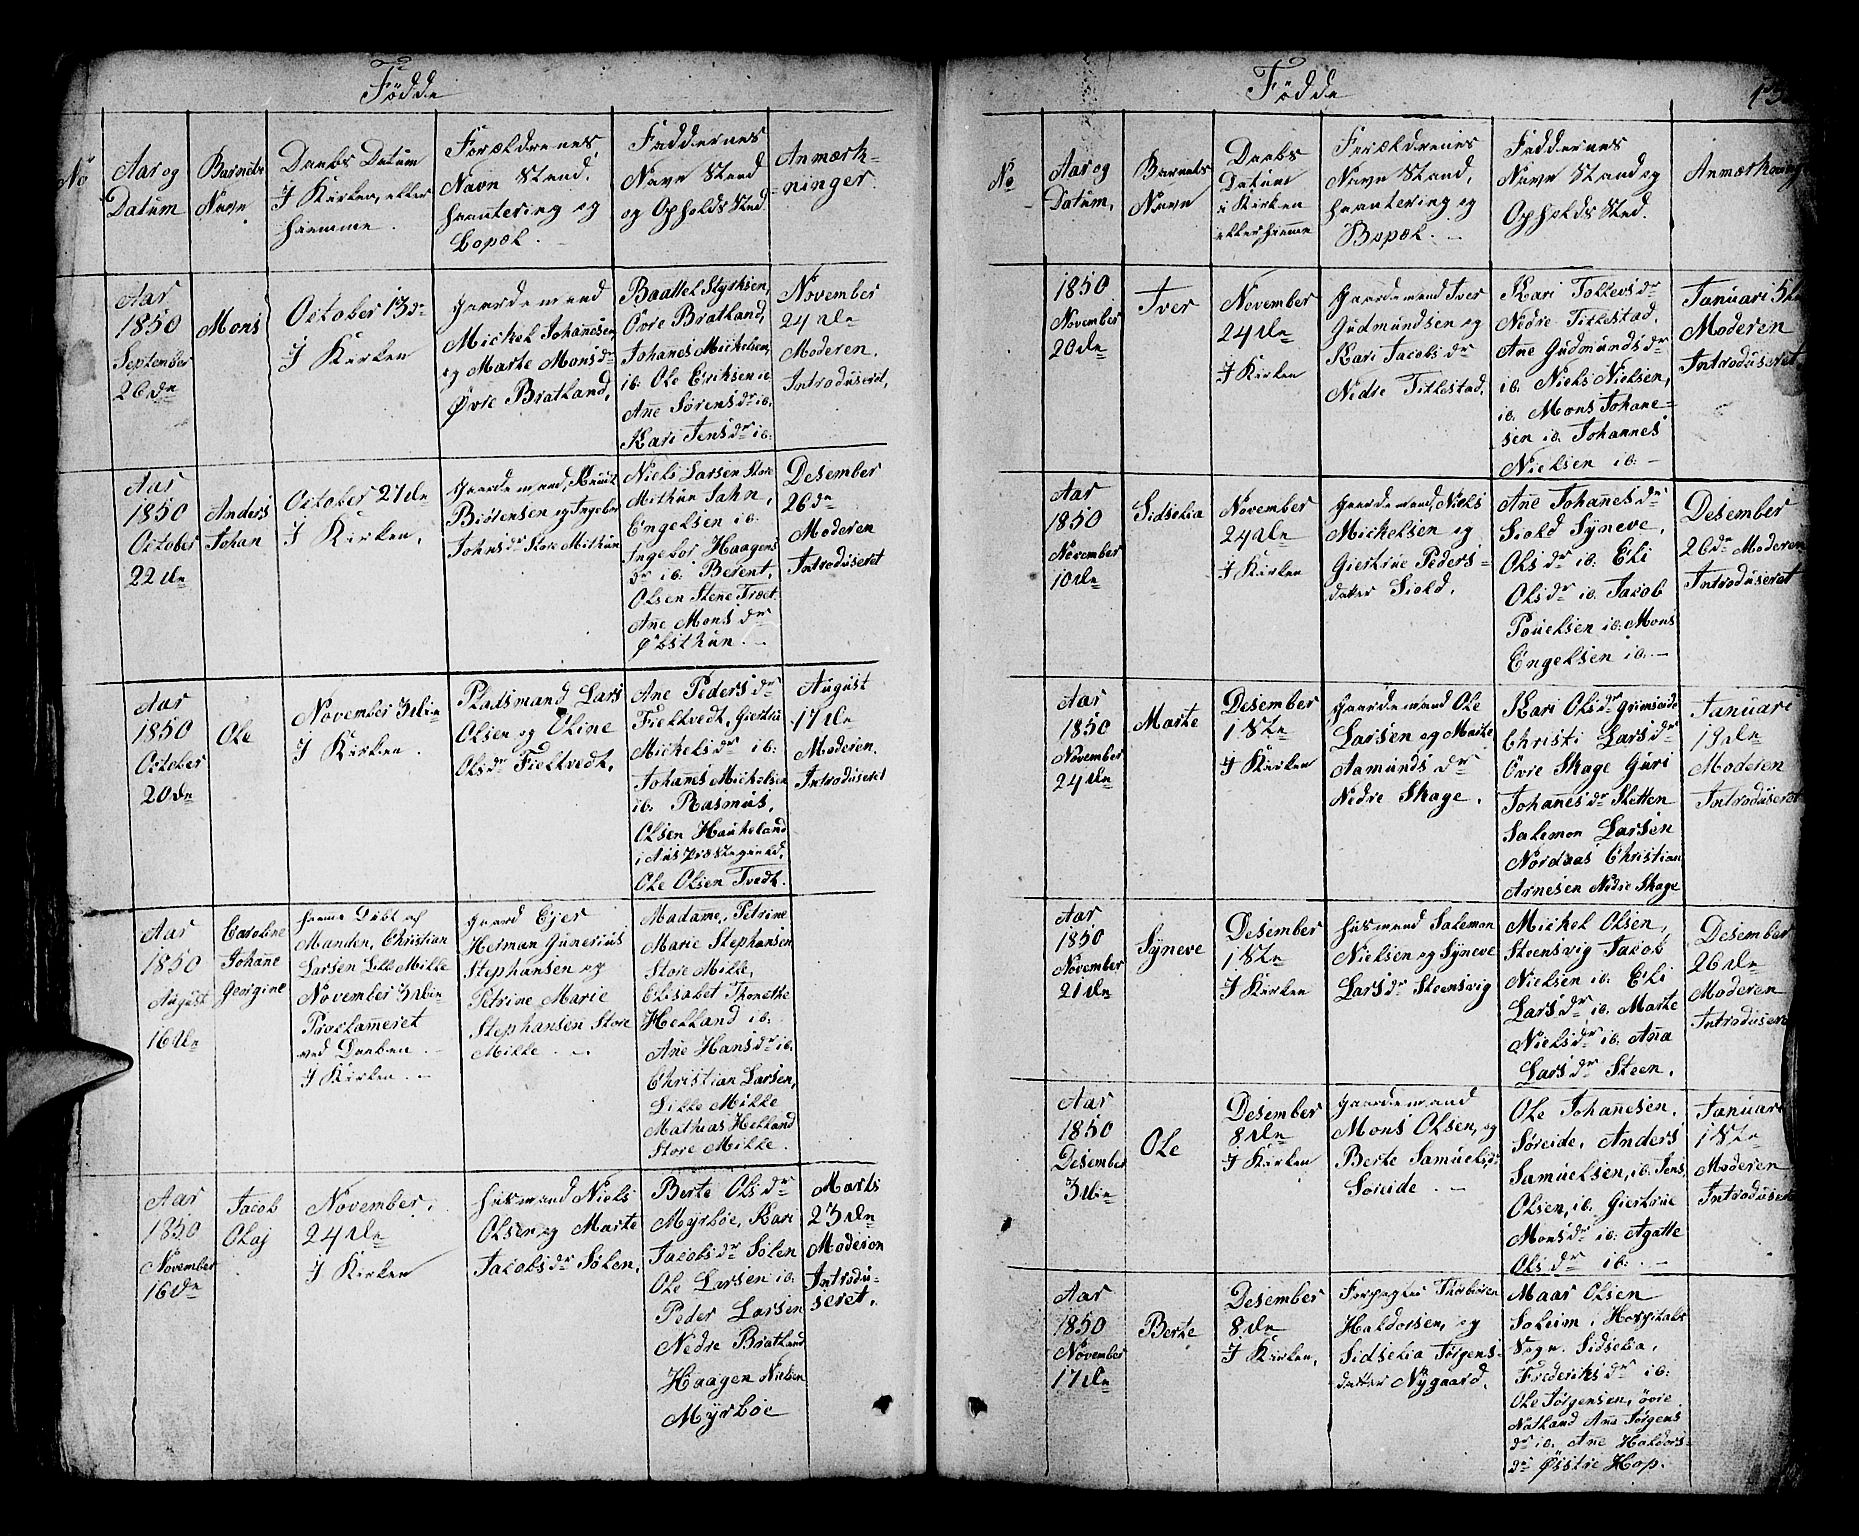 Fødde
No
Aar og
Datum
Barnets
Navn
Daabs Datum
I Kirken, eller
hiemme.
Forældrenes
Navn Stand,
haantering og
Bopæl.
Faddernes
Navn Stand
og Opholds Sted
Anmærk=
=ninger.
Aar
1850
September
26de
Mons
October 13de
I Kirken
Gaardemand
Mickel Johanesen,
og Marte Monsdr
Øvre Bratland,
Baattel Styrksen,
Øvre Bratland,
Johanes Mickelsen,
ib: Ole Eriksen ib
Ane Sørensdr ib:
Kari Jensdr ib:
November
24de
Moderen.
Introduseret,
Aar
1850
October
22de
Anders
Johan
October 27de
I Kirken,
Gaardemand, Knud
Biørensen og Ingebor
Johnsdr Store Mithun
Niels Larsen Store
Mithun Jahn,
Engelsen ib:
Ingebor Haagens
dr ib: Berent,
Olsen Stene Træet
Ane Monsdr
Øbsthun.
Desember
26de
Moderen
Introduseret
Aar
1850
October
20de
Ole
November 3die
I Kirken.
Pladsmand Lars
Olsen og Oline
Olsdr Fieltvedt,
Ane Pedersdr
Fieltvedt, Giertru
Mickelsdr ib:
Johanes Mickelsen
ib: Rasmus,
Olsen Haukeland
i Aus Præstegield,
Ole Olsen Tvedt.
August
17de
Moderen.
Introduseret
Aar
1850
August
16de
Caroline
Johane
Georgine
hieme Døbt af
Manden, Christian
Larsen Lille Milde
November 3die
Proclameret
ved Daaben
I Kirken.
Gaard Ejer
Herman Gunerius
Stephansen og
Petrine Marie
Stephansen Store
Milde
Madame, Petrine
Marie Stephansen
Store Milde,
Elisabet Thonethe
Helland ib:
Ane Hansdr ib:
Christian Larsen,
Lille Milde
Mathias Helland
Store Milde.
Aar
1850
November
16de
Jacob
Olaj
November
24de
I Kirken
Husmand Niels
Olsen og Marte
Jacobsdr Sølen,
Berte Olsdr
Myrbøe, Kari
Jacobsdr Sølen
Ole Larsen ib:
Peder Larsen
Nedre Bratland
Haagen Nielsen
Myrbøe
Marts
23de
Moderen
Introdu=
seret.
Fødde
No
Aar og
Datum,
Barnets
Navn
Daabs
Datum
i Kirken
eller hieme
Forældrenes
Navn Stand,
haantering og
Bopæl.
Faddernes
Navn Stand og
Opholds Sted.
Anmærkning
1850
November
20de
Iver
November
24de
I Kirken
Gaardemand Iver
Gudmundsen og
Kari Jacobsdr
Nedre Titlestad.
Kari Tollevsdr
Nedre Titlestad.
Ane Gudmundsdr
ib. Niels Nielsen,
ib. Mons Johane=
sen ib. Johannes
Nielsen ib:
Januari 5te
Moderen
Introduseret
Aar
1850
November
10de
Sidselia
November
24de
I Kirken
Gaardemand, Niels
Mickelsen og
Giertrue Peders=
datter Siold.
Ane Johanesdr
Siold Syneve,
Olsdr ib: Eli
Olsdr ib. Jacob
Pouelsen ib: Mons
Engelsen ib.
Desember
26de Moderen
Introduseret
Aar
1850
November
24de
Marte
Desember
1ste
I Kirken
Gaardemand Ole
Larsen og Marte
Aamundsdr
Nedre Skage.
Kari Olsdr Grimseide
Christi Larsdr
Øvre Skage Guri
Johanesdr Sletten
Salemon Larsen
Nordaas Christian
Arnesen Nedre Skage
Januari
19de
Moderen
Introduseret
Aar
1850
November
21de
Syneve
Desember
1ste
I Kirken
Husmand Salemon
Nielsen og Syneve
Larsdr Steensvig
Mickel Olsen,
Steensvig Jacob
Nielsen ib: Eli
Larsdr ib: Marte
Nielsdr ib: Ana
Larsdr Steen.
Desember
26de
Moderen
Introduseret
Aar
1850
Desember
3die
Ole
Desember
8de
I Kirken
Gaardemand
Mons Olsen, og
Berte Samuelsdr
Søreide.
Ole Johanesen,
Søreide, Anders
Samuelsen, ib: Jens
Olsen, ib. Giertrue
Monsdr ib: Agatte
Olsdr ib:
Januari
1ste
Moderen
Introduseret
Aar
1850
November
17de
Berte
Desember
8de
I Kirken.
Forpagter Thorbiøren
Haldorsen, og
Sidselia Jørgens=
datter Nygaard.
Maar Olsen
Solheim, Hospitals
Sogn. Sidselia,
Frederiksdr ib:
Ole Jørgensen, øvre
Natland Ane Jørgens
dr ib: Ane Haldors=
dr Øsstre Hop.